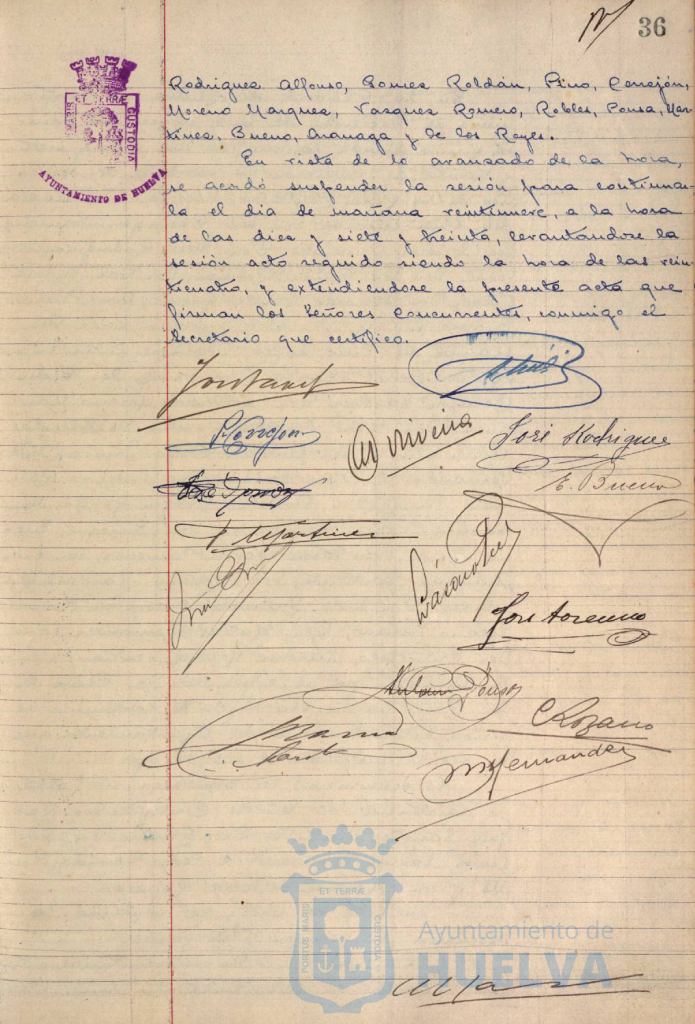 36
Rodriguez Alfonso, Gomez Roldán, Pino, Cerrejón,
Moreno Marquez, Vazquez Romero, Robles, Ponsa, Mar-
tinez, Bueno, Aranaga y de los Reyes.
En vista de lo avanzado de la hora,
se acordó suspender la sesión para continuar-
la el dia de mañana veintinueve, a la hora
de las diez y siete y treinta, levantandose la
sesión acto seguido siendo la hora de las vein-
ticuatro, y extendiendose la presente acta que
firman los Señores Concurrentes, conmigo el
Secretario que certifico.
ET TERRÆ
CUSTODIA
AYUNTAMIENTO DE HUELVA
José Rodriguez
E. Bueno
Martinez
C Lozano
M Hernandez
PORTUS MARIS
ET TERRÆ
CUSTODIA
Ayuntamiento de
HUELVA